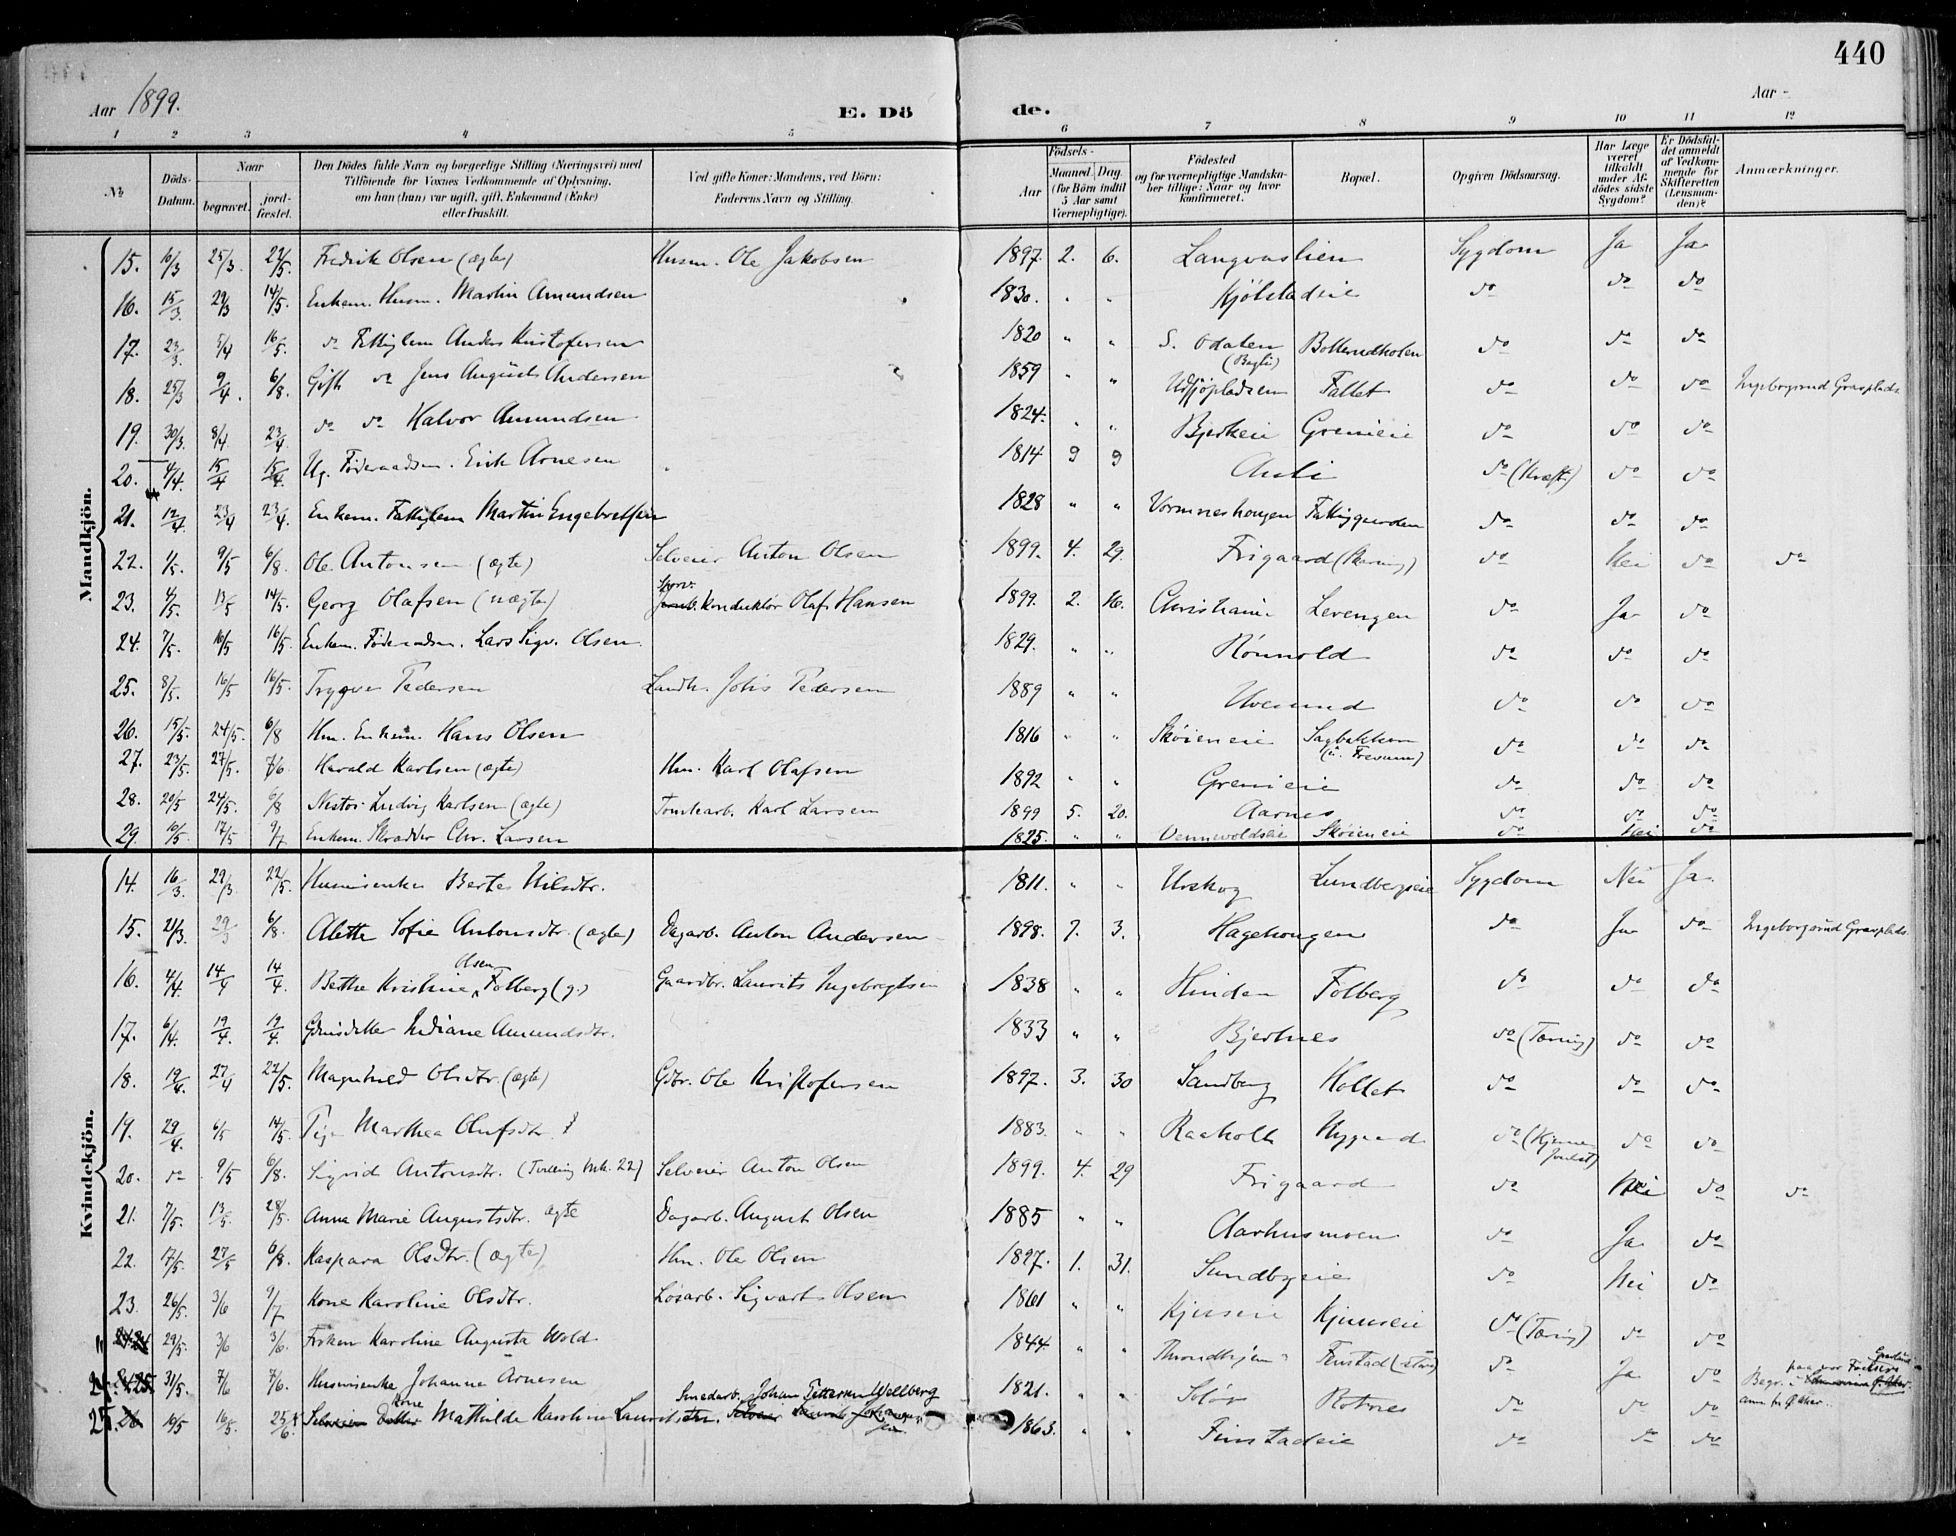 440
Aar 1899.
E. Dö
de.
Aar -
1 2 3 4 5 6 7 8 9 10 11 12
№
Döds-Datum.
Naar
begravet.
jord-fæstet.
Den Dødes fulde Navn og borgerlige Stilling (Næringsvei) med
Tilföiende for Voxnes Vedkommende af Oplysning,
om han (hun) var ugift, gift, Enkemand (Enke)
eller fraskilt.
Ved gifte Koner: Mandens, ved Börn:
Faderens Navn og Stilling.
Födsels-
Aar
Maaned. Dag.
(for Börn indtil 5 Aar samt Værnepligtige).
Födested
og for værnepligtige Mandska-
ber tillige: Naar og hvor
konfirmeret.
Bopæl.
Opgiven Dödsaarsag.
Har Læge været tilkaldt under Af-dödes sidste Sygdom?
Er Dödsfal-det anmeldt af Vedkom-mende for Skifteretten (Lensman-den)?
Anmærkninger.
Mandkjön.
15. 16/3 25/3. 22/5. Fredrik Olsen (ægte) Husm. Ole Jakobsen 1897. 2. 6. Langvaslien Sygdom Ja Ja
16. 15/3. 29/3 14/5. Enkem. Husm. Martin Amundsen 1830. " " Kjölstadeie do do do
17. 23/3. 5/4 16/5. do Fattiglem Anders Kristofersen 1820 " " S. Odalen Bollerudholen do do do
18. 25/3 9/4. 6/8. Gift do Jens August Andersen 1859 " " Udsjøpladsen Fallet do do do Ingeborgrud Gravplads.
19. 30/3. 8/4 23/4 do do Halvor Amundsen 1824. " " Bjerkeie Greneie do do do
20. 4/4. 15/4 15/4. Ug. Föderaadsm. Erik Arnesen 1814 9 9 Auli do (Kræft) do do
21. 12/4 23/4 23/4. Enkem. Fattiglem Martin Engebretsen 1828 " " Vormneshaugen Fattiggaarden do do do
22. 1/5. 9/5 6/8. Ole Antonsen (ægte) Selveier Anton Olsen 1899. 4. 29. Frigaard do Nei do do
23. 4/5. 13/5 14/5. Georg Olafsen (uægte) Sporv. Konduktör Olaf Hansen 1899. 2. 16. Christiania Levengen do Ja do
24. 7/5. 16/5 16/5. Enkem. Föderaadsm. Lars Sigv. Olsen. 1829. " " Rönnold do do do
25. 8/5. 16/5 16/5. Trygve Pedersen Landh. Johs Pedersen 1889 " " Uvesund do do do
26. 15/5 24/5. 6/8 Hm. Enkem. Hans Olsen 1816 " " Skøieneie Sagbakken do do do
27. 23/5. 27/5. 7/6. Harald Karlsen (ægte) Hm. Karl Olafsen 1892 " " Greneie do do do
28. 20/5 24/5. 6/8 Nestor Ludvig Karlsen (ægte) Tomtearb. Karl Larsen 1899 5. 20. Aarnes do do do
29. 10/5. 17/5 9/7 Enkem. Skrædder Chr. Larsen 1825. " " Vennevoldseie Skøieneie do Nei do
Kvindekjön.
14. 16/3. 29/3 22/5. Husmsenke Berte Nilsdtr. 1811. " " Urskog Lundbergeie Sygdom Nei Ja
15. 21/3. 29/3 6/8. Alette Sofie Antonsdtr. (ægte) Dagarb. Anton Andersen 1898. 7. 3. Hagehaugen do Ja do Ingeborgrud Gravplads.
16. 4/4. 14/4 14/4. Berthe Kristine Olsen Folberg (g.) Gaardbr. Laurits Ingebregtsen 1838 " " Hinden Folberg do do do
17. 6/4. 19/4. 19/4. Gdmsdatter Indiane Amundsdtr. 1833 " " Bjertnes do (Tæring) do do
18. 19/4. 27/4 22/5. Magnhild Olsdtr. (ægte) Gdbr. Ole Kristofersen 1897. 3. 30 Sandberg Holtet do do do
19. 29/4. 6/5 14/5. Pige Marthea Olufsdtr. 1883. " " Raaholt Nygaard do do do
20. do 9/5 6/8. Sigrid Antonsdtr. (Tvilling Mk. 22) Selveier Anton Olsen 1899. 4. 29 Frigaard do Nei do do
21. 7/5. 13/5. 28/5. Anna Marie Augustsdtr. ægte Dagarb. August Olsen 1885 " " Aarhusmoen do Ja do
22. 17/5. 27/5 6/8. Kaspara Olsdtr. (ægte) Hm. Ole Olsen 1897. 1. 31. Sundbyeie do Nei do
23. 26/5. 3/6 9/7 Kone Karoline Olsdtr. Løsarb. Sigvart Olsen 1861 " " Kjuuseie Kjuuseie do (Tæring) do do
24 29/5. 3/6 3/6. Frøken Karoline Augusta Wold 1844. " " Throndhjem Finstad do Ja do
31/5. 7/6 7/6. Husmsenke Johanne Arnesen 1821. " " Solör Rotnes do do do
25. 10/5 16/5. 25/6. Kone Mathilde Karoline Smedarb. Johan Pettersen Wellberg 1863. " " Finstadeie do do do